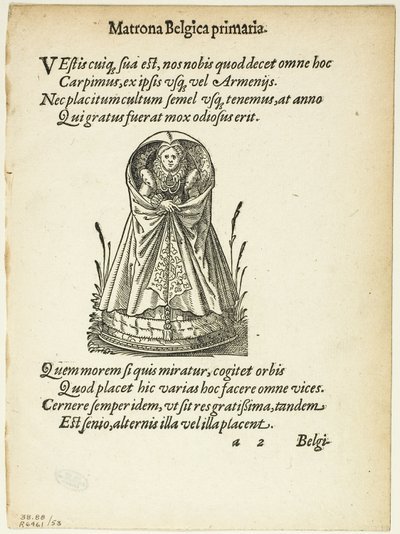 Matrona Belgica primaria.
VEſtis cuiq; ſua eſt, nos nobis quod decet omne hoc
Carpimus, ex ipſis vſq; vel Armenijs.
Nec placitum cultum ſemel vſq; tenemus, at anno
Qui gratus fuerat mox odioſus erit.
Quem morem ſi quis miratur, cogitet orbis
Quod placet hic varias hoc facere omne vices.
Cernere ſemper idem, vt ſit res gratiſsima, tandem
Eſt ſenio, alternis illa vel illa placent.
a 2 Belgi-
38.88
R6961/53